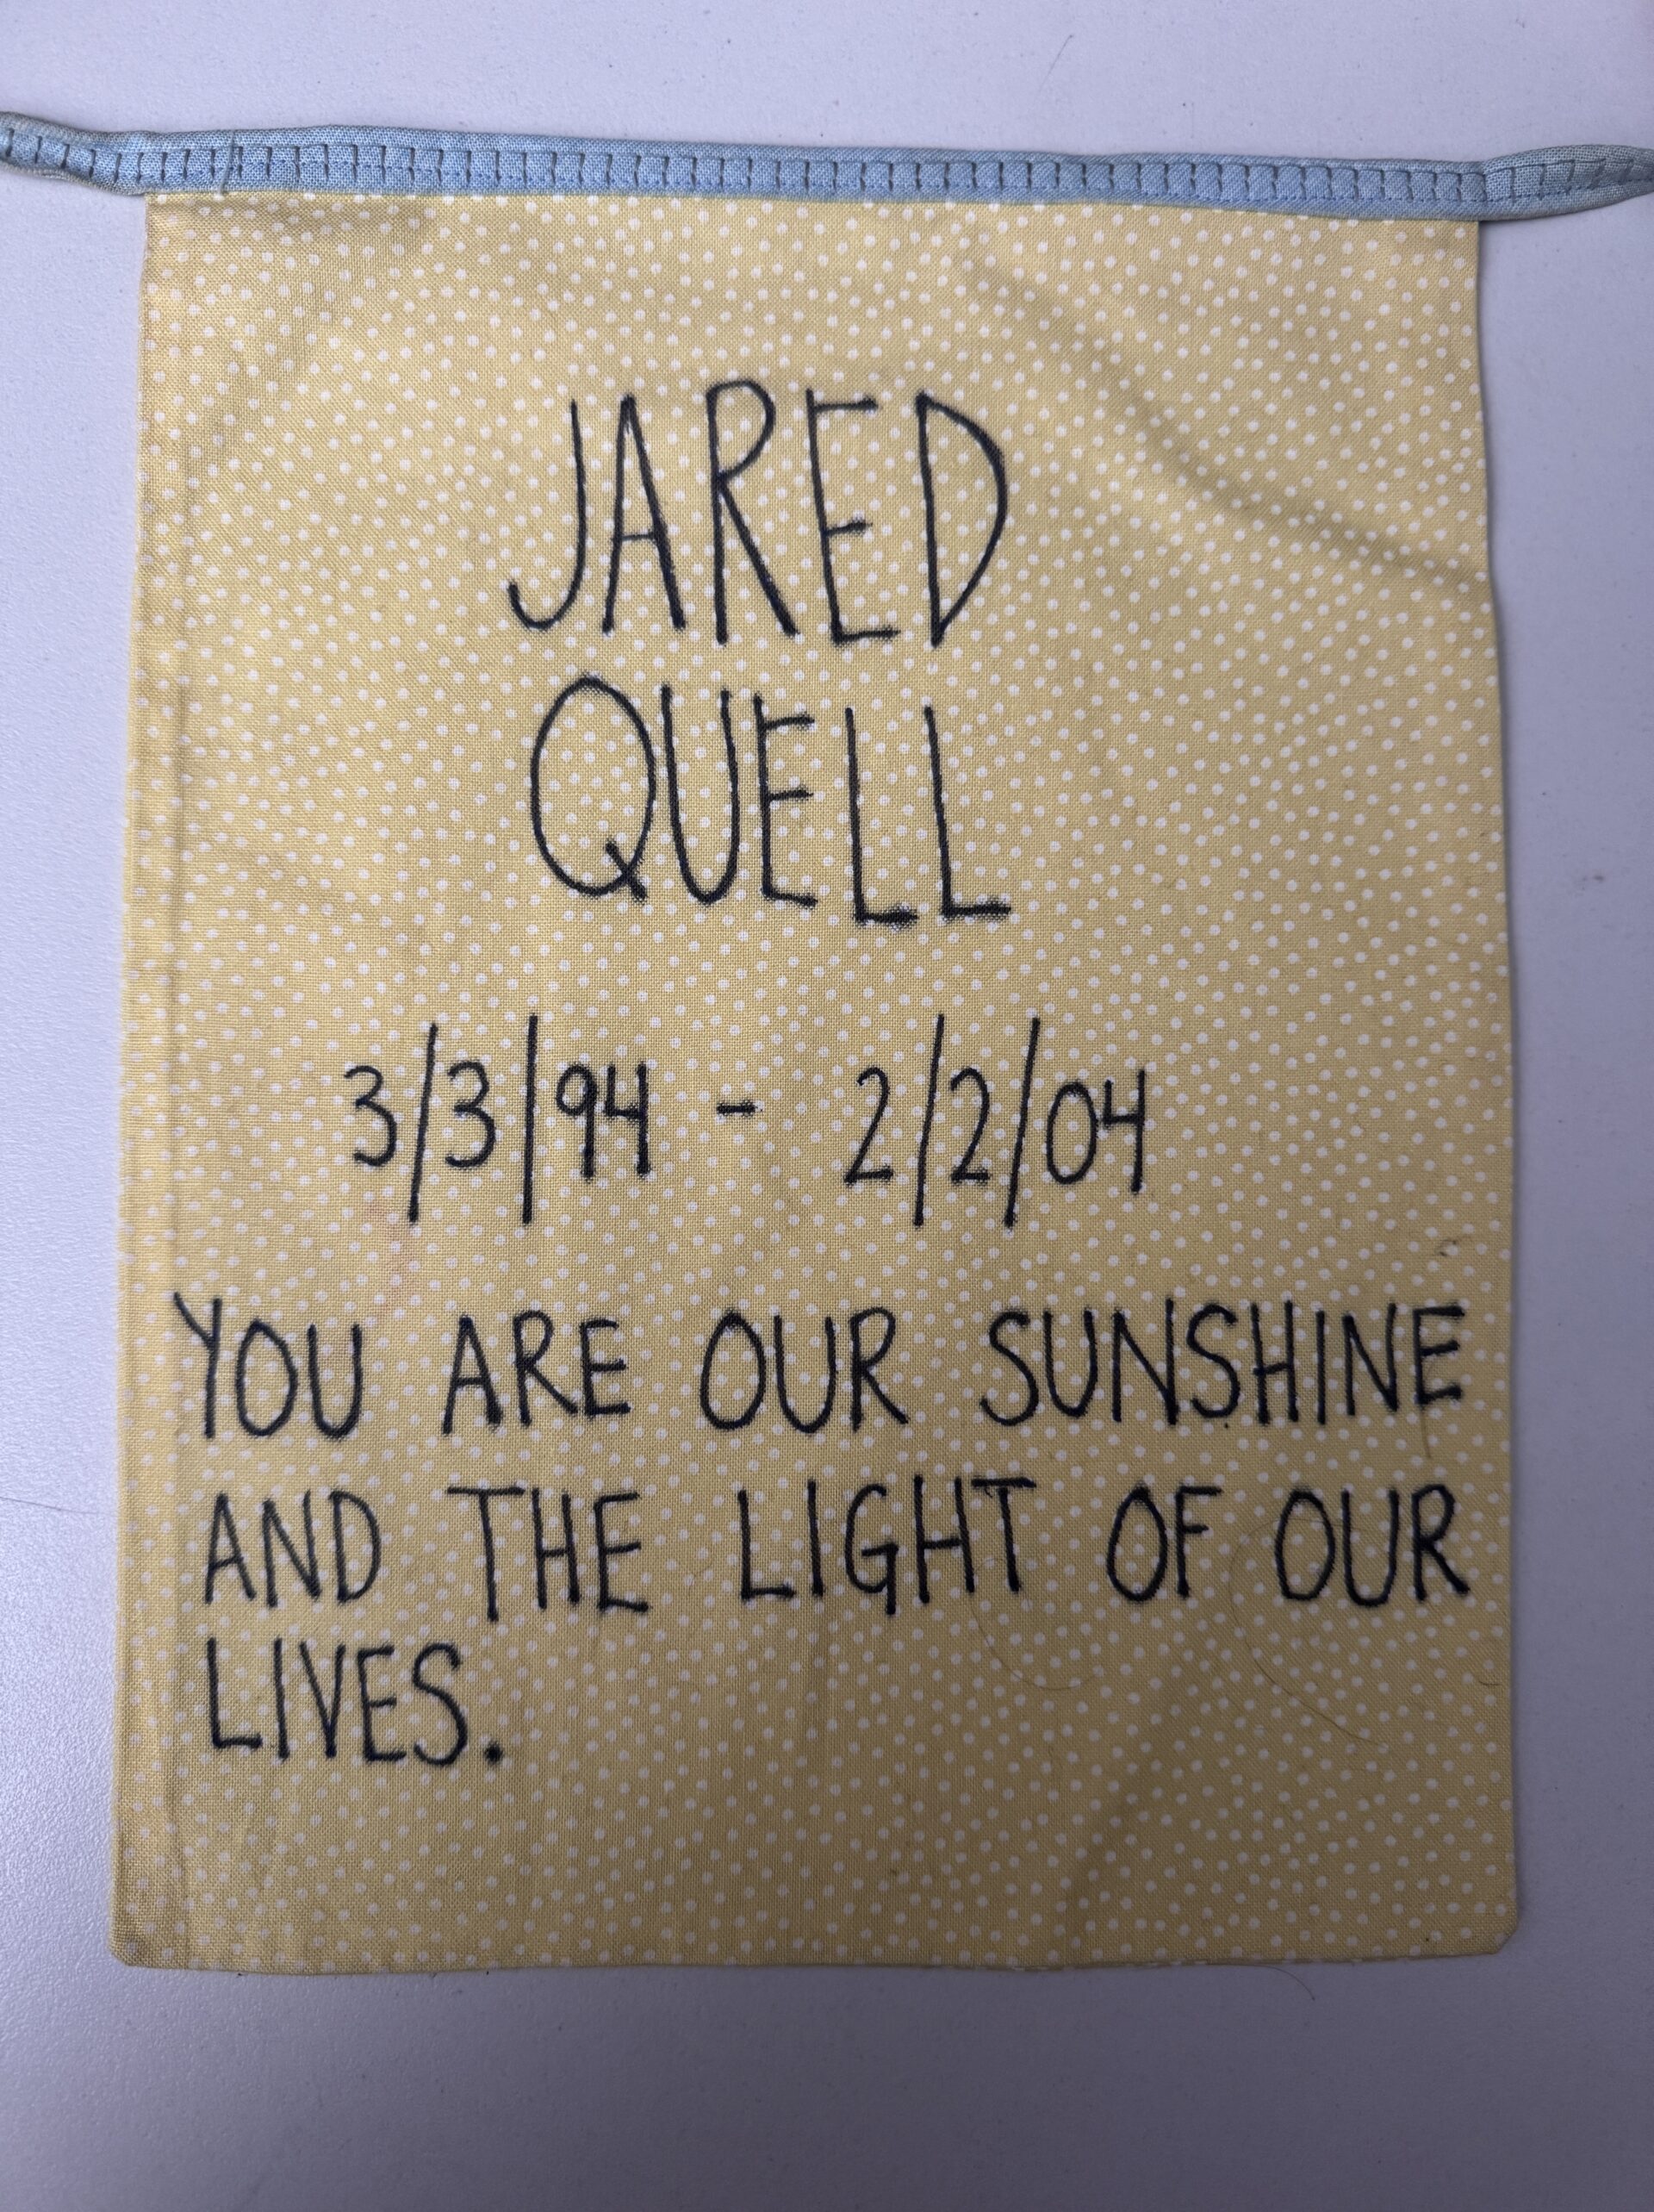 JARED
QUELL
3/3/94 - 2/2/04
YOU ARE OUR SUNSHINE
AND THE LIGHT OF OUR
LIVES.